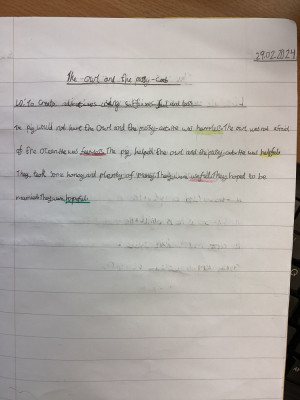 29.02.2024
The owl and the pussy-cat
LO: To create adjectives using suffixes -ful and less
The pig would not hurt the owl and the pussy-cat. He was harmless. The owl was not afraid
of the ocean. He was fearless. The pig helped the owl and the pussy cat. He was helpful.
They took some honey and plenty of money. They were useful. They hoped to be
married. They were hopeful.